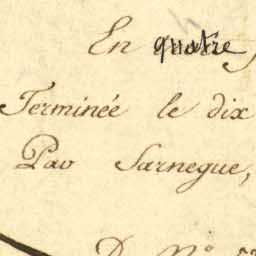 En quatre
Terminée le dix
Pav Sarnegue,